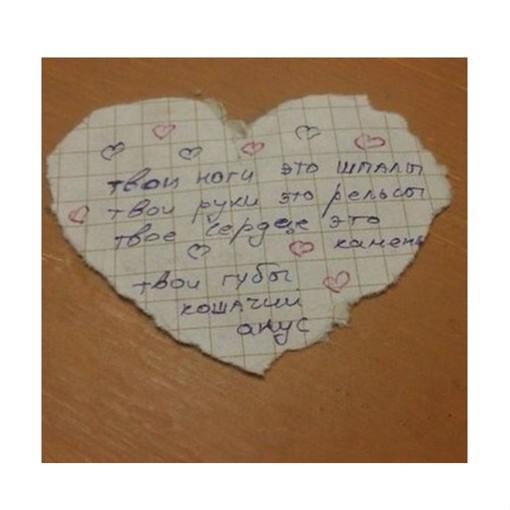 твои ноги это шпалы
твои руки это рельсы
твое сердце это
камень
твои губы
кошачий
анус